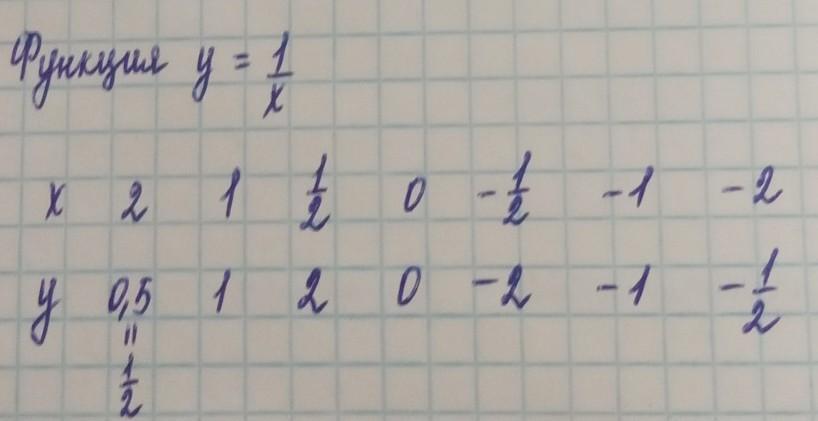 Функция y = 1/x
x 2 1 1/2 0 -1/2 -1 -2
y 0,5 1 2 0 -2 -1 -1/2
=
1/2